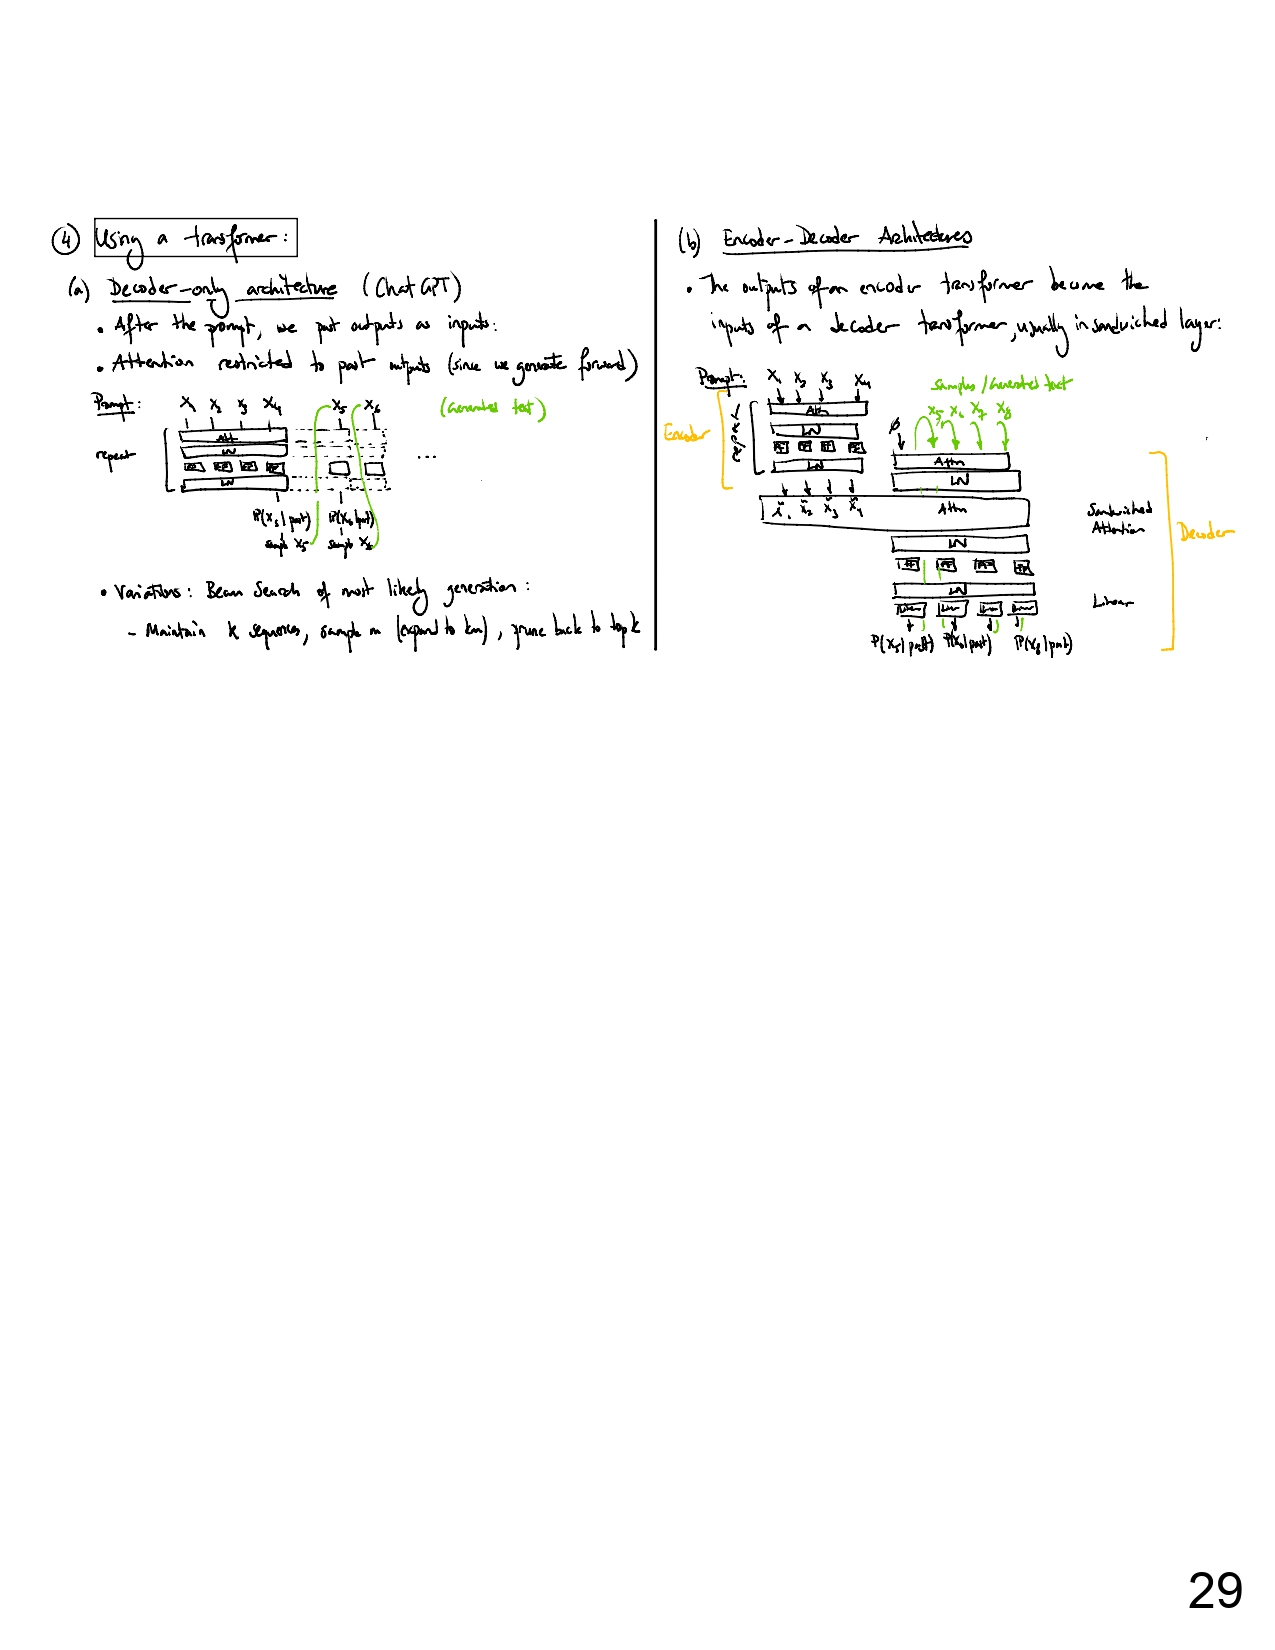 ④ Using a transformer:
(a) Decoder-only architecture (Chat GPT)
• After the prompt, we put outputs as inputs:
• Attention restricted to past outputs (since we generate forward)
Prompt: X₁ X₂ X₃ X₄ X₅ X₆ (Generated text)
Attn
repeat LN ...
FF FF FF FF
LN
P(X₅|past) P(X₆|past)
sample X₅ sample X₆
• Variations: Beam Search of most likely generation:
- Maintain K sequences, sample m (expand to km), prune back to top k
(b) Encoder-Decoder Architectures
• The outputs of an encoder transformer become the
inputs of a decoder transformer, usually in sandwiched layer:
Prompt: X₁ X₂ X₃ X₄ Samples/Generated text
Encoder repeat Attn ∅ X₅ X₆ X₇ X₈
LN
FF FF FF FF
LN Attn
LN
X̃₁ X̃₂ X̃₃ X̃₄ Attn Sandwiched
Attention Decoder
LN
FF FF FF FF
LN
Linear
P(X₅|past) P(X₆|past) P(X₈|past)
29